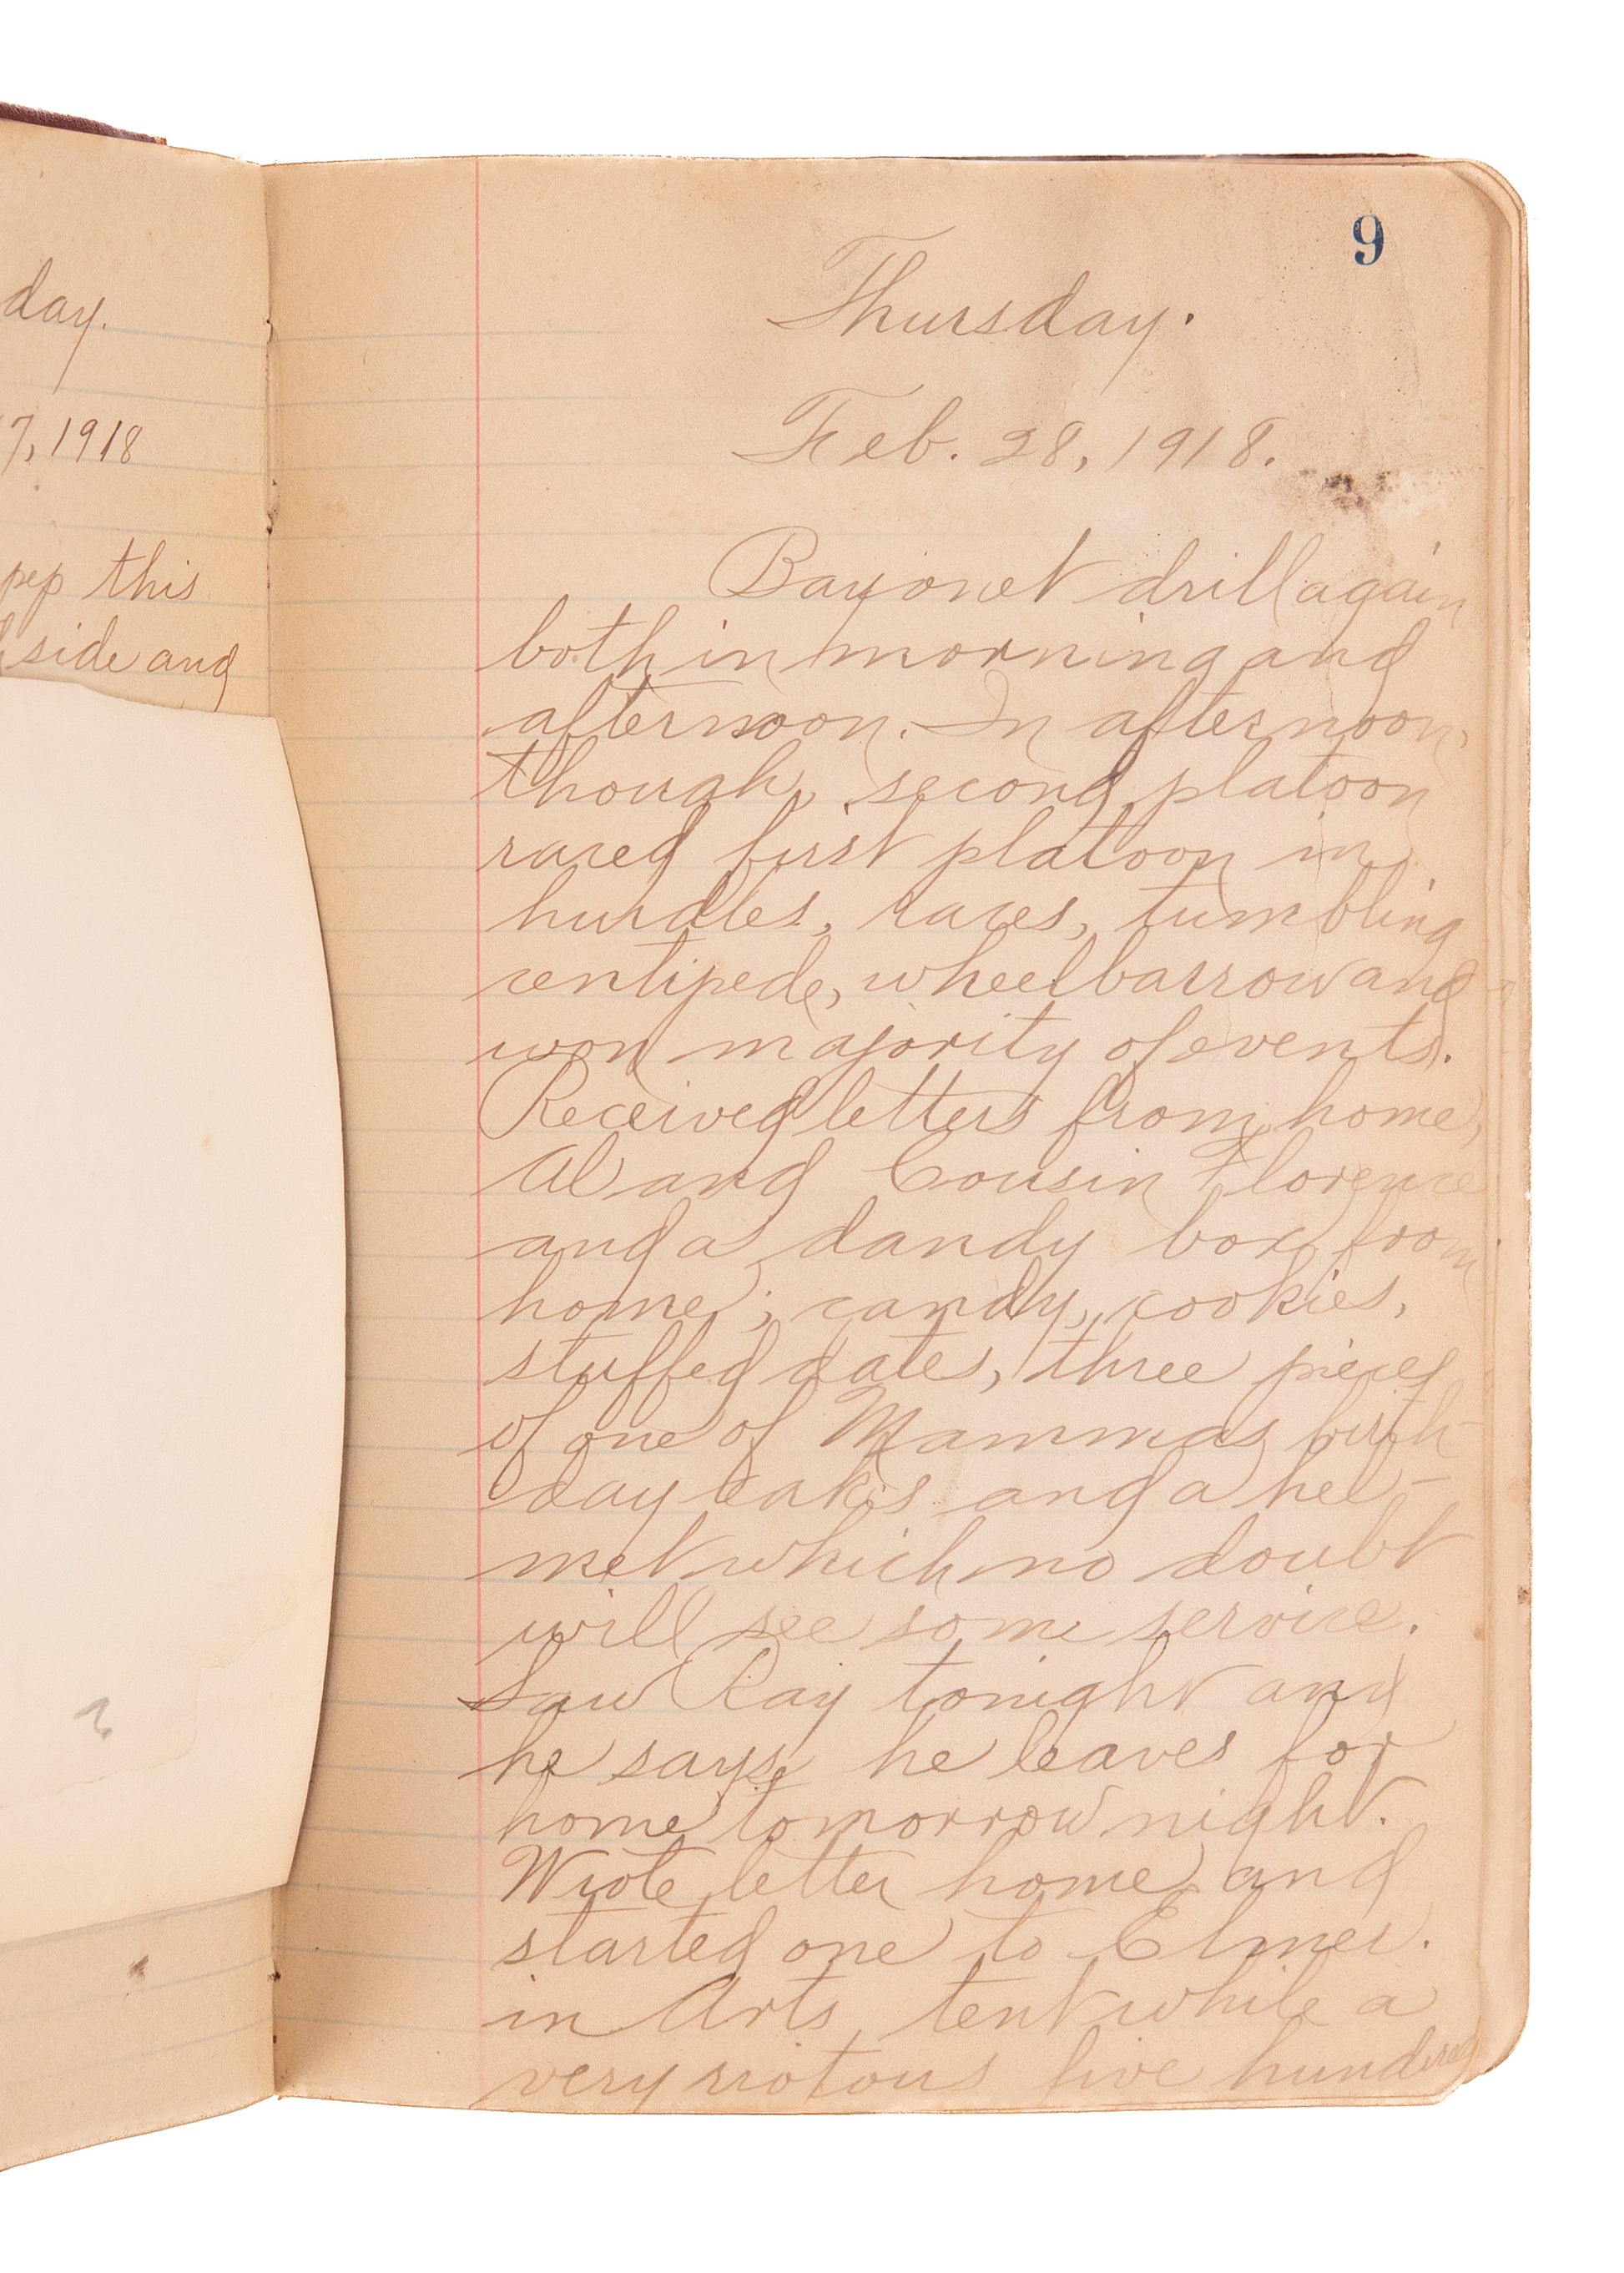 day.
7, 1918
pep this
side and
9
Thursday.
Feb. 28, 1918.
Bayonet drill again
both in morning and
afternoon. In afternoon,
though, second platoon
raced first platoon in
hurdles, races, tumbling
centipede, wheelbarrow and
won majority of events.
Received letters from home,
Al and Cousin Florence
and a dandy box from
home; candy, cookies,
stuffed dates, three pieces
of one of Mammas birth-
day cakes and a hel-
met which no doubt
will see some service.
Saw Ray tonight and
he says he leaves for
home tomorrow night.
Wrote letter home and
started one to Elmer.
in Arts tent while a
very riotous five hundred